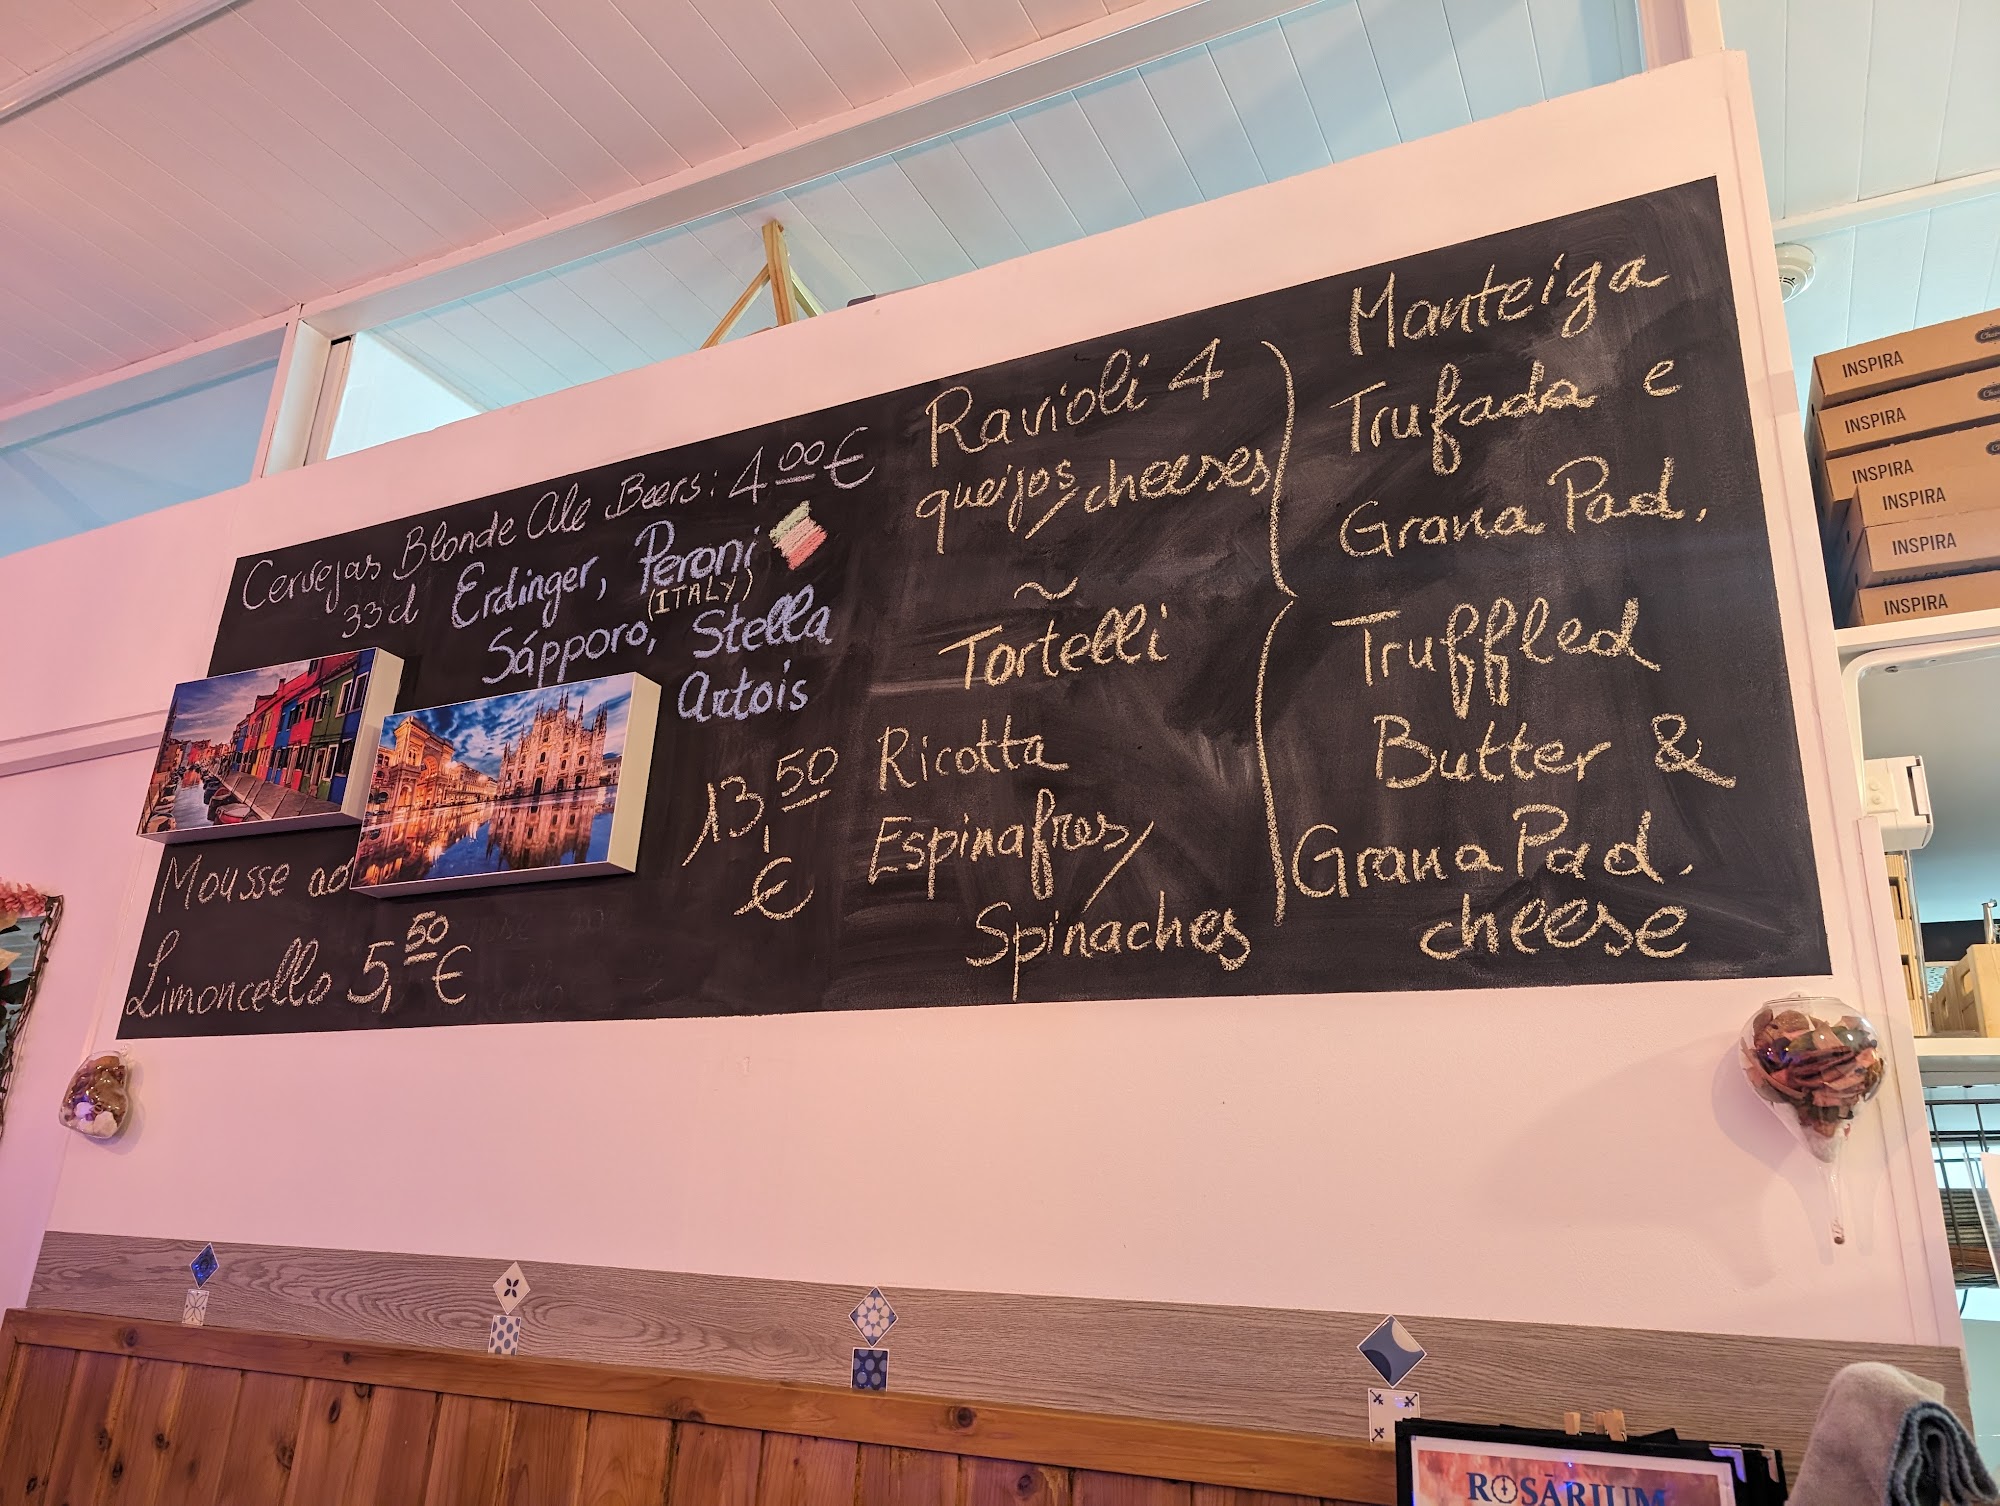 Cervejas Blonde Ale Beers: 4,00€
33cl Erdinger, Peroni
(ITALY)
Sápporo, Stella
Artois
Mousse ao
Limoncello 5,50€
13,50
€
Ravioli 4
queijos/cheeses
~
Tortelli
Ricotta
Espinafres/
Spinaches
Manteiga
Trufada e
Grana Pad.
Truffled
Butter &
Grana Pad.
cheese
INSPIRA
INSPIRA
INSPIRA
INSPIRA
INSPIRA
INSPIRA
ROSĀRIUM